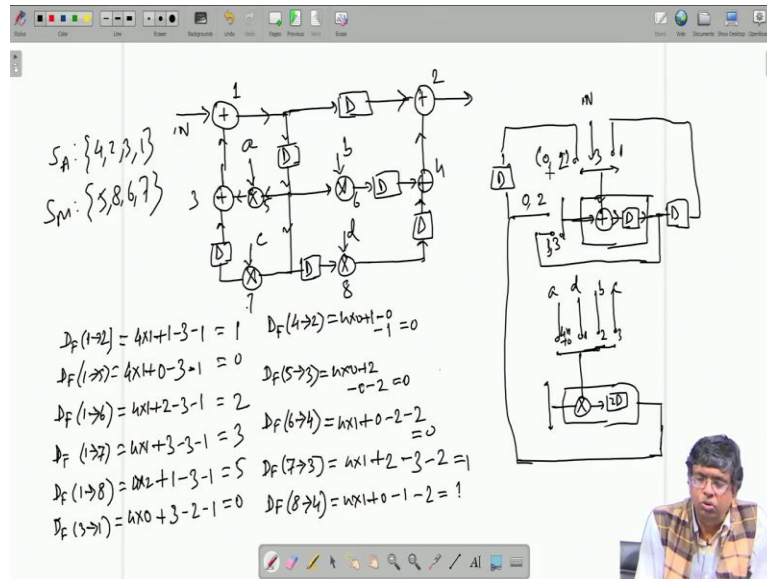 Stylus
Color
Line
Eraser
Backgrounds
Undo
Redo
Pages
Previous
Next
Erase
Board
Web
Documents
Show Desktop
S_A: {4,2,3,1}
S_M: {5,8,6,7}
1
2
+
D
+
IN
D
a
b
3
+
X
5
X
6
D
+
4
D
c
d
D
X
7
D
X
8
D_F(1→2) = 4x1+1-3-1 = 1
D_F(1→5) = 4x1+0-3-1 = 0
D_F(1→6) = 4x1+2-3-1 = 2
D_F(1→7) = 4x1+3-3-1 = 3
D_F(1→8) = 4x2+1-3-1 = 5
D_F(3→1) = 4x0+3-2-1 = 0
D_F(4→2) = 4x0+1-0
-1 = 0
D_F(5→3) = 4x0+2
-0-2 = 0
D_F(6→4) = 4x1+0-2-2
= 0
D_F(7→3) = 4x1+2-3-2 = 1
D_F(8→4) = 4x1+0-1-2 = 1
IN
3
1
D
0, 2
+
D
D
3
a
d
b
c
1
2
3
X
2D
AI